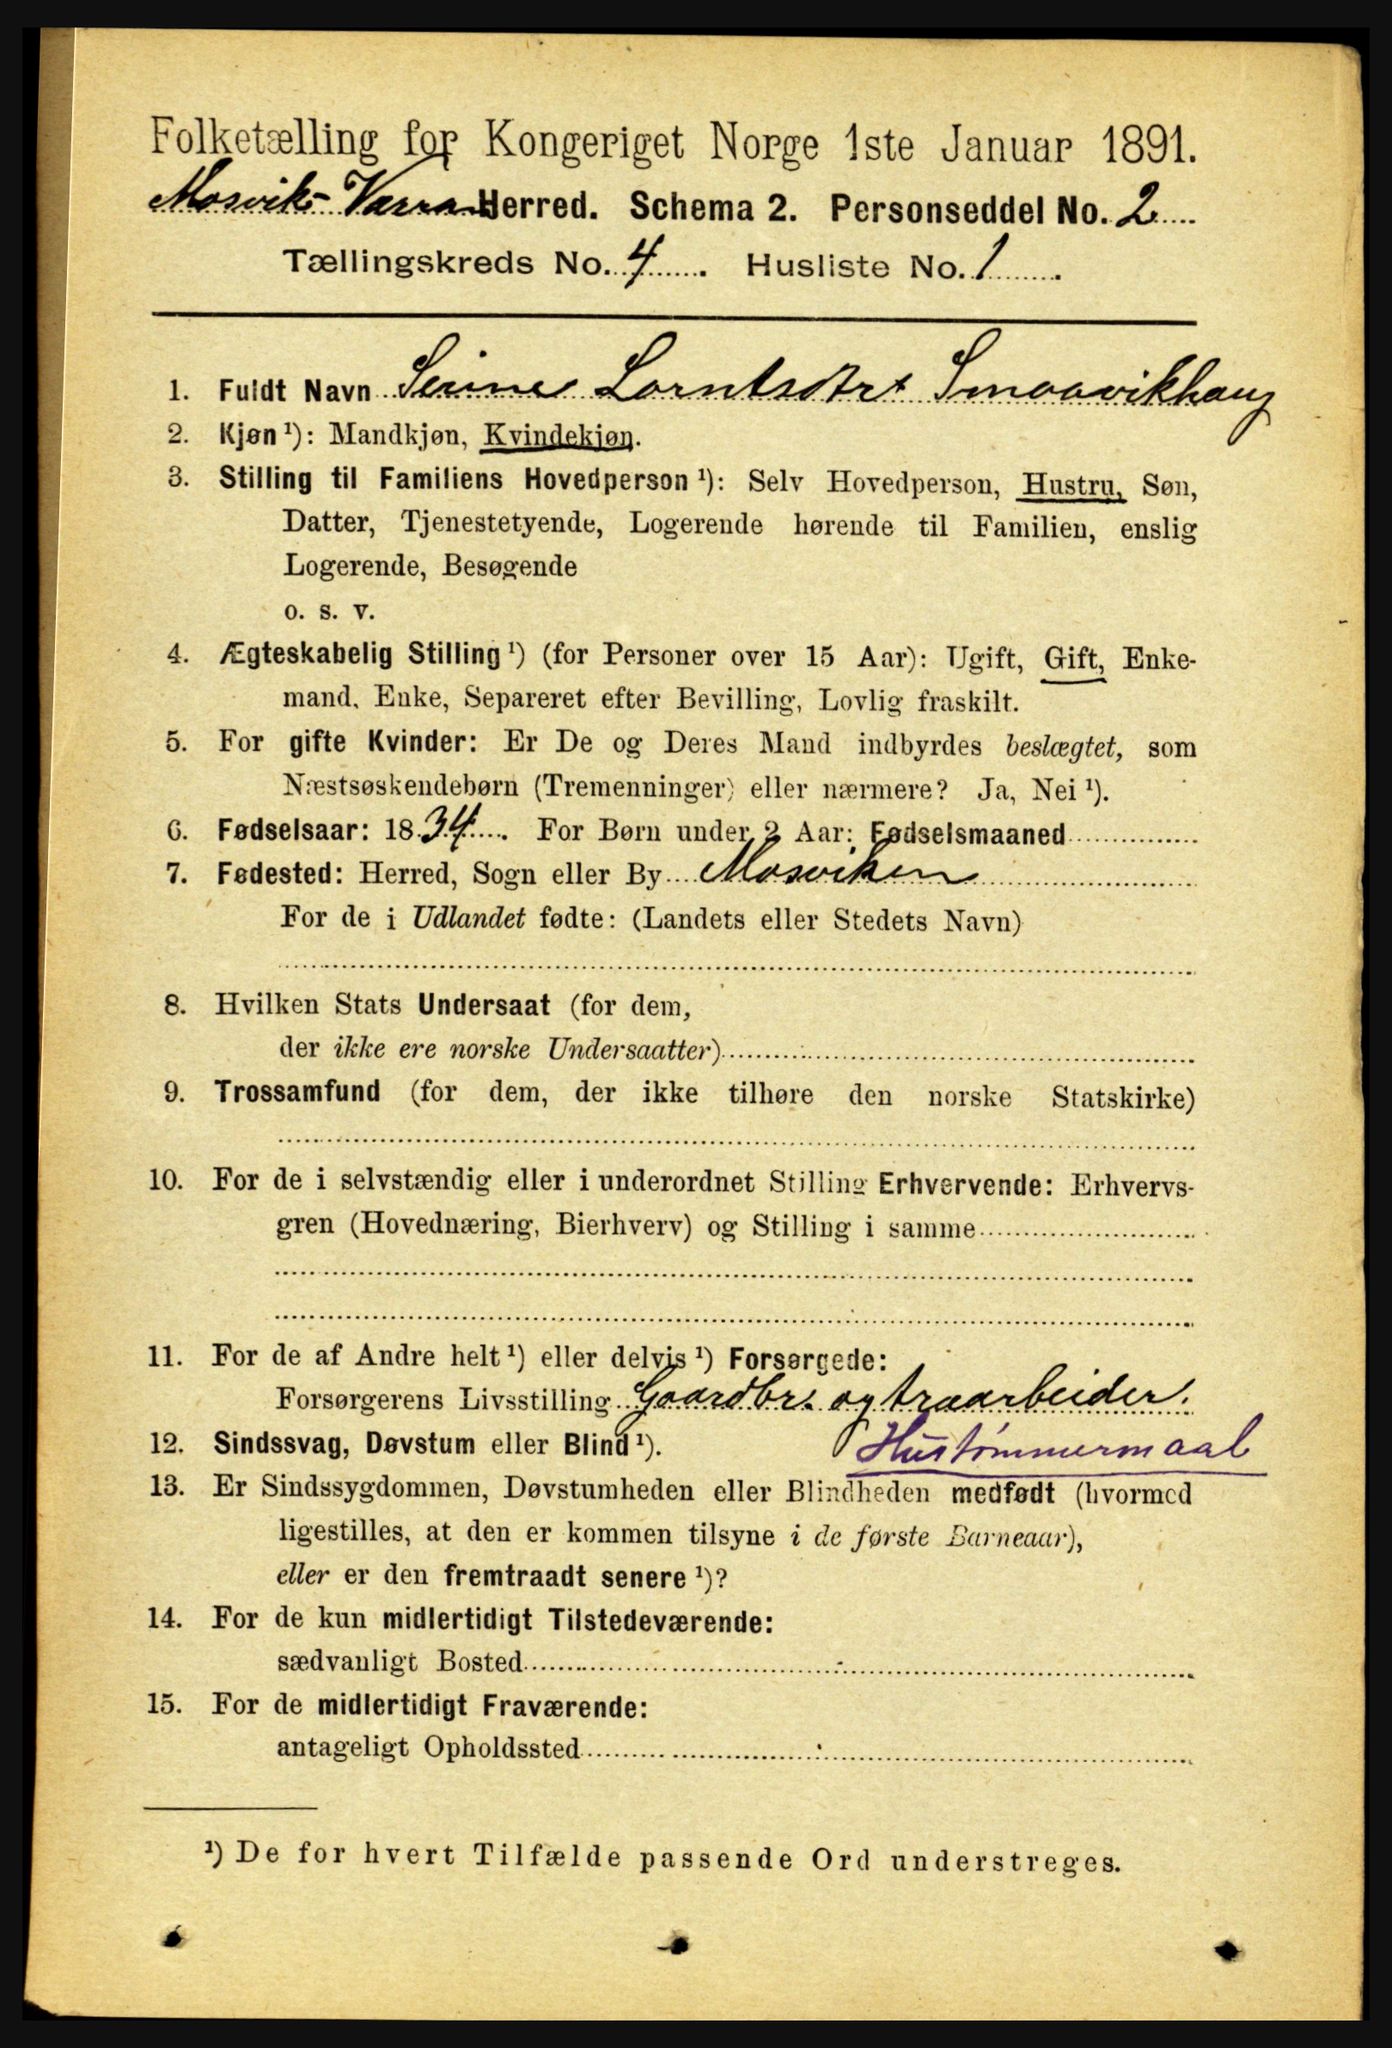 Folketælling for Kongeriget Norge 1ste Januar 1891.
Mosvik-Varra Herred. Schema 2. Personseddel No. 2
Tællingskreds No. 4. Husliste No. 1.
1. Fuldt Navn Serine Lorntsdtr Smaavikhaug
2. Kjøn ¹): Mandkjøn, Kvindekjøn.
3. Stilling til Familiens Hovedperson ¹): Selv Hovedperson, Hustru, Søn,
Datter, Tjenestetyende, Logerende hørende til Familien, enslig
Logerende, Besøgende
o. s. v.
4. Ægteskabelig Stilling ¹) (for Personer over 15 Aar): Ugift, Gift, Enke-
mand, Enke, Separeret efter Bevilling, Lovlig fraskilt.
5. For gifte Kvinder: Er De og Deres Mand indbyrdes beslægtet, som
Næstsøskendebørn (Tremenninger) eller nærmere? Ja, Nei ¹).
6. Fødselsaar: 1834. For Børn under 2 Aar: Fødselsmaaned
7. Fødested: Herred, Sogn eller By Mosviken
For de i Udlandet fødte: (Landets eller Stedets Navn)
8. Hvilken Stats Undersaat (for dem,
der ikke ere norske Undersaatter)
9. Trossamfund (for dem, der ikke tilhøre den norske Statskirke)
10. For de i selvstændig eller i underordnet Stilling Erhvervende: Erhvervs-
gren (Hovednæring, Bierhverv) og Stilling i samme
11. For de af Andre helt ¹) eller delvis ¹) Forsørgede:
Forsørgerens Livsstilling Gaardbr. og træarbeider.
12. Sindssvag, Døvstum eller Blind ¹). Hustømmermaal
13. Er Sindssygdommen, Døvstumheden eller Blindheden medfødt (hvormed
ligestilles, at den er kommen tilsyne i de første Barneaar),
eller er den fremtraadt senere ¹)?
14. For de kun midlertidigt Tilstedeværende:
sædvanligt Bosted
15. For de midlertidigt Fraværende:
antageligt Opholdssted
¹) De for hvert Tilfælde passende Ord understreges.